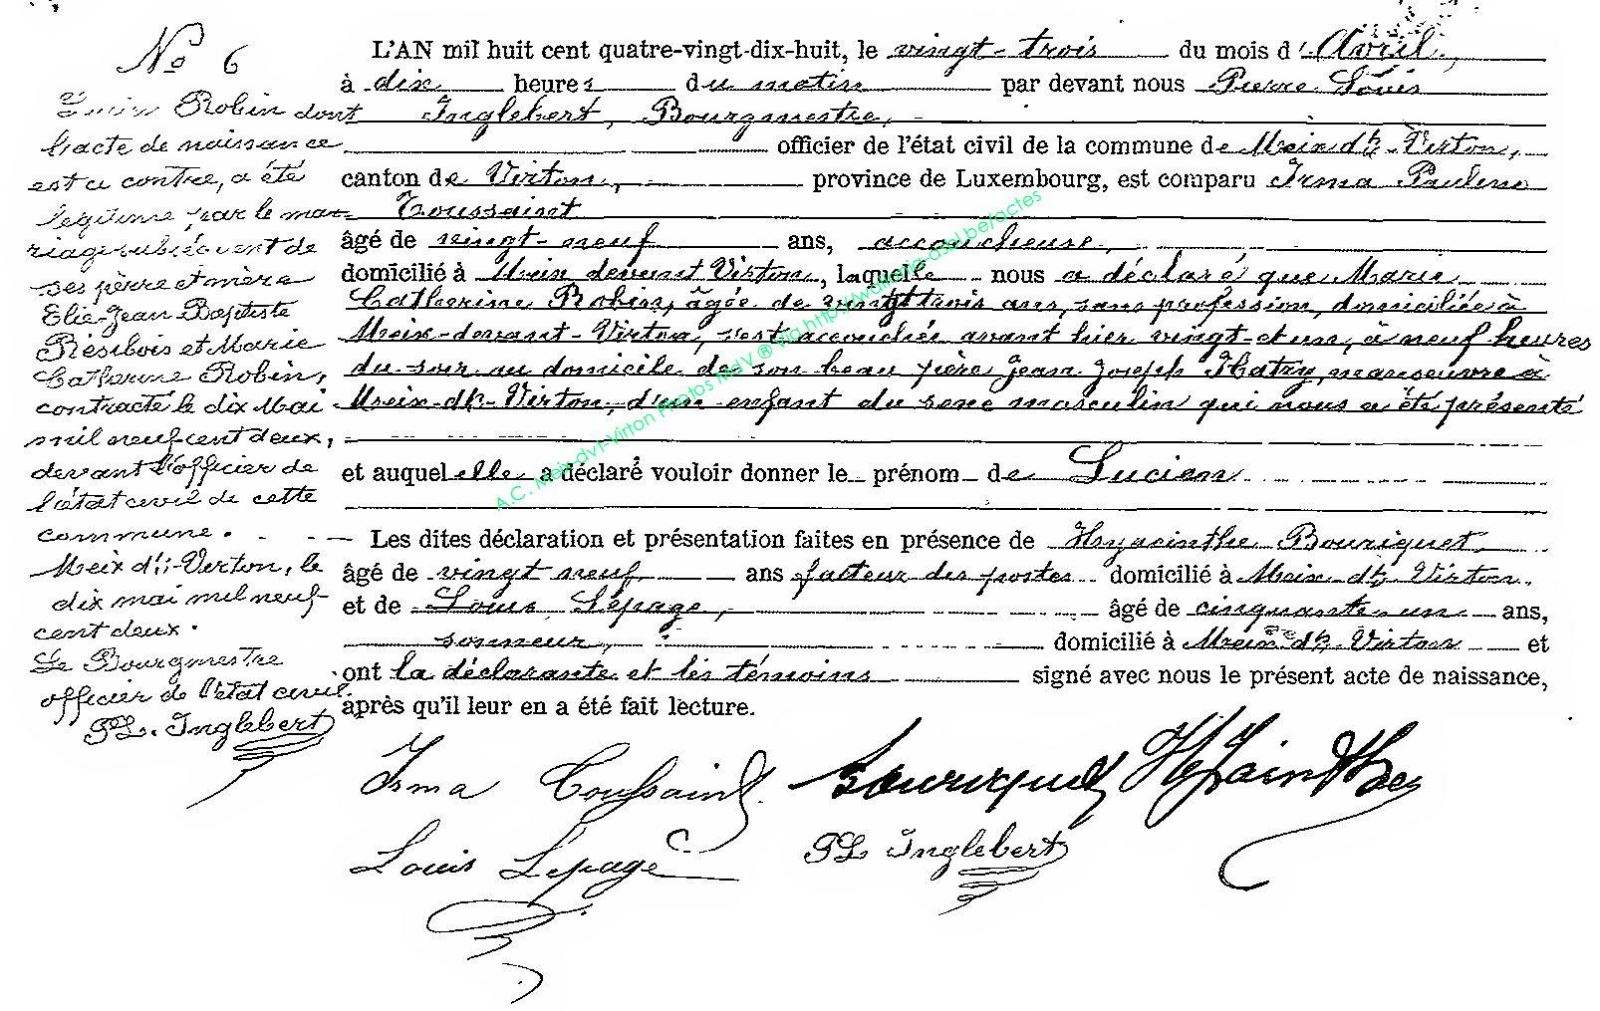 No 6
Lucien Robin dont
l'acte de naissance
est ci contre, a été
légitimé par le ma-
riage subséquent de
ses père et mère
Elie-Jean Baptiste
Résibois et Marie
Catherine Robin,
contracté le dix Mai
mil neuf cent deux,
devant l'officier de
l'état civil de cette
commune.
Meix dt Virton, le
dix mai mil neuf
cent deux.
Le Bourgmestre
officier de l'état civil.
PL. Inglebert
L'AN mil huit cent quatre-vingt-dix-huit, le vingt-trois du mois d'Avril,
à dix heures du matin par devant nous Pierre Louis
Inglebert, Bourgmestre,
officier de l'état civil de la commune de Meix dt Virton,
canton de Virton, province de Luxembourg, est comparu Irma Pauline
Toussaint
âgé de vingt-neuf ans, accoucheuse,
domicilié à Meix devant Virton, laquelle nous a déclaré que Marie
Catherine Robin, âgée de vingt trois ans, sans profession, domiciliée à
Meix-devant-Virton, s'est accouchée avant hier vingt-et un, à neuf heures
du soir au domicile de son beau père Jean Joseph manœuvre à
Meix-dt-Virton, d'un enfant du sexe masculin qui nous a été présenté
et auquel elle a déclaré vouloir donner le prénom de Lucien
Les dites déclaration et présentation faites en présence de Hyacinthe Bouriquet
âgé de vingt neuf ans facteur des postes domicilié à Meix dt Virton.
et de Louis Lepage, âgé de cinquante-un ans,
sonneur, domicilié à Meix dt Virton et
ont la déclarante et les témoins signé avec nous le présent acte de naissance,
après qu'il leur en a été fait lecture.
Irma Toussaint Bouriquet Hyacinthe
Louis Lepage PL Inglebert